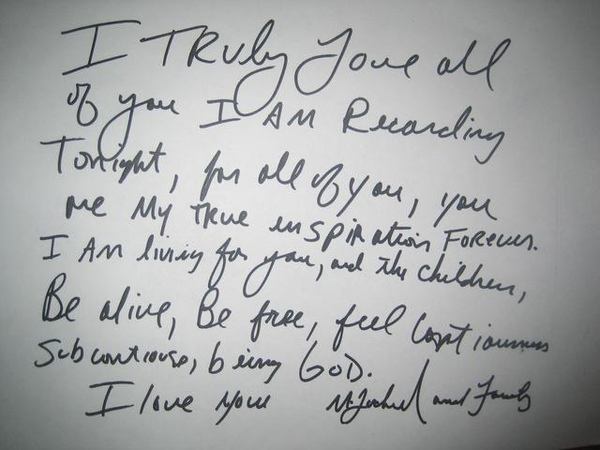 I TRuly Love all
of you I AM Recording
Tonight, for all of you, you
are My TRUe inspiration Forever.
I AM living for you, and The children,
Be alive, Be free, feel
being GOD.
I love you and Family